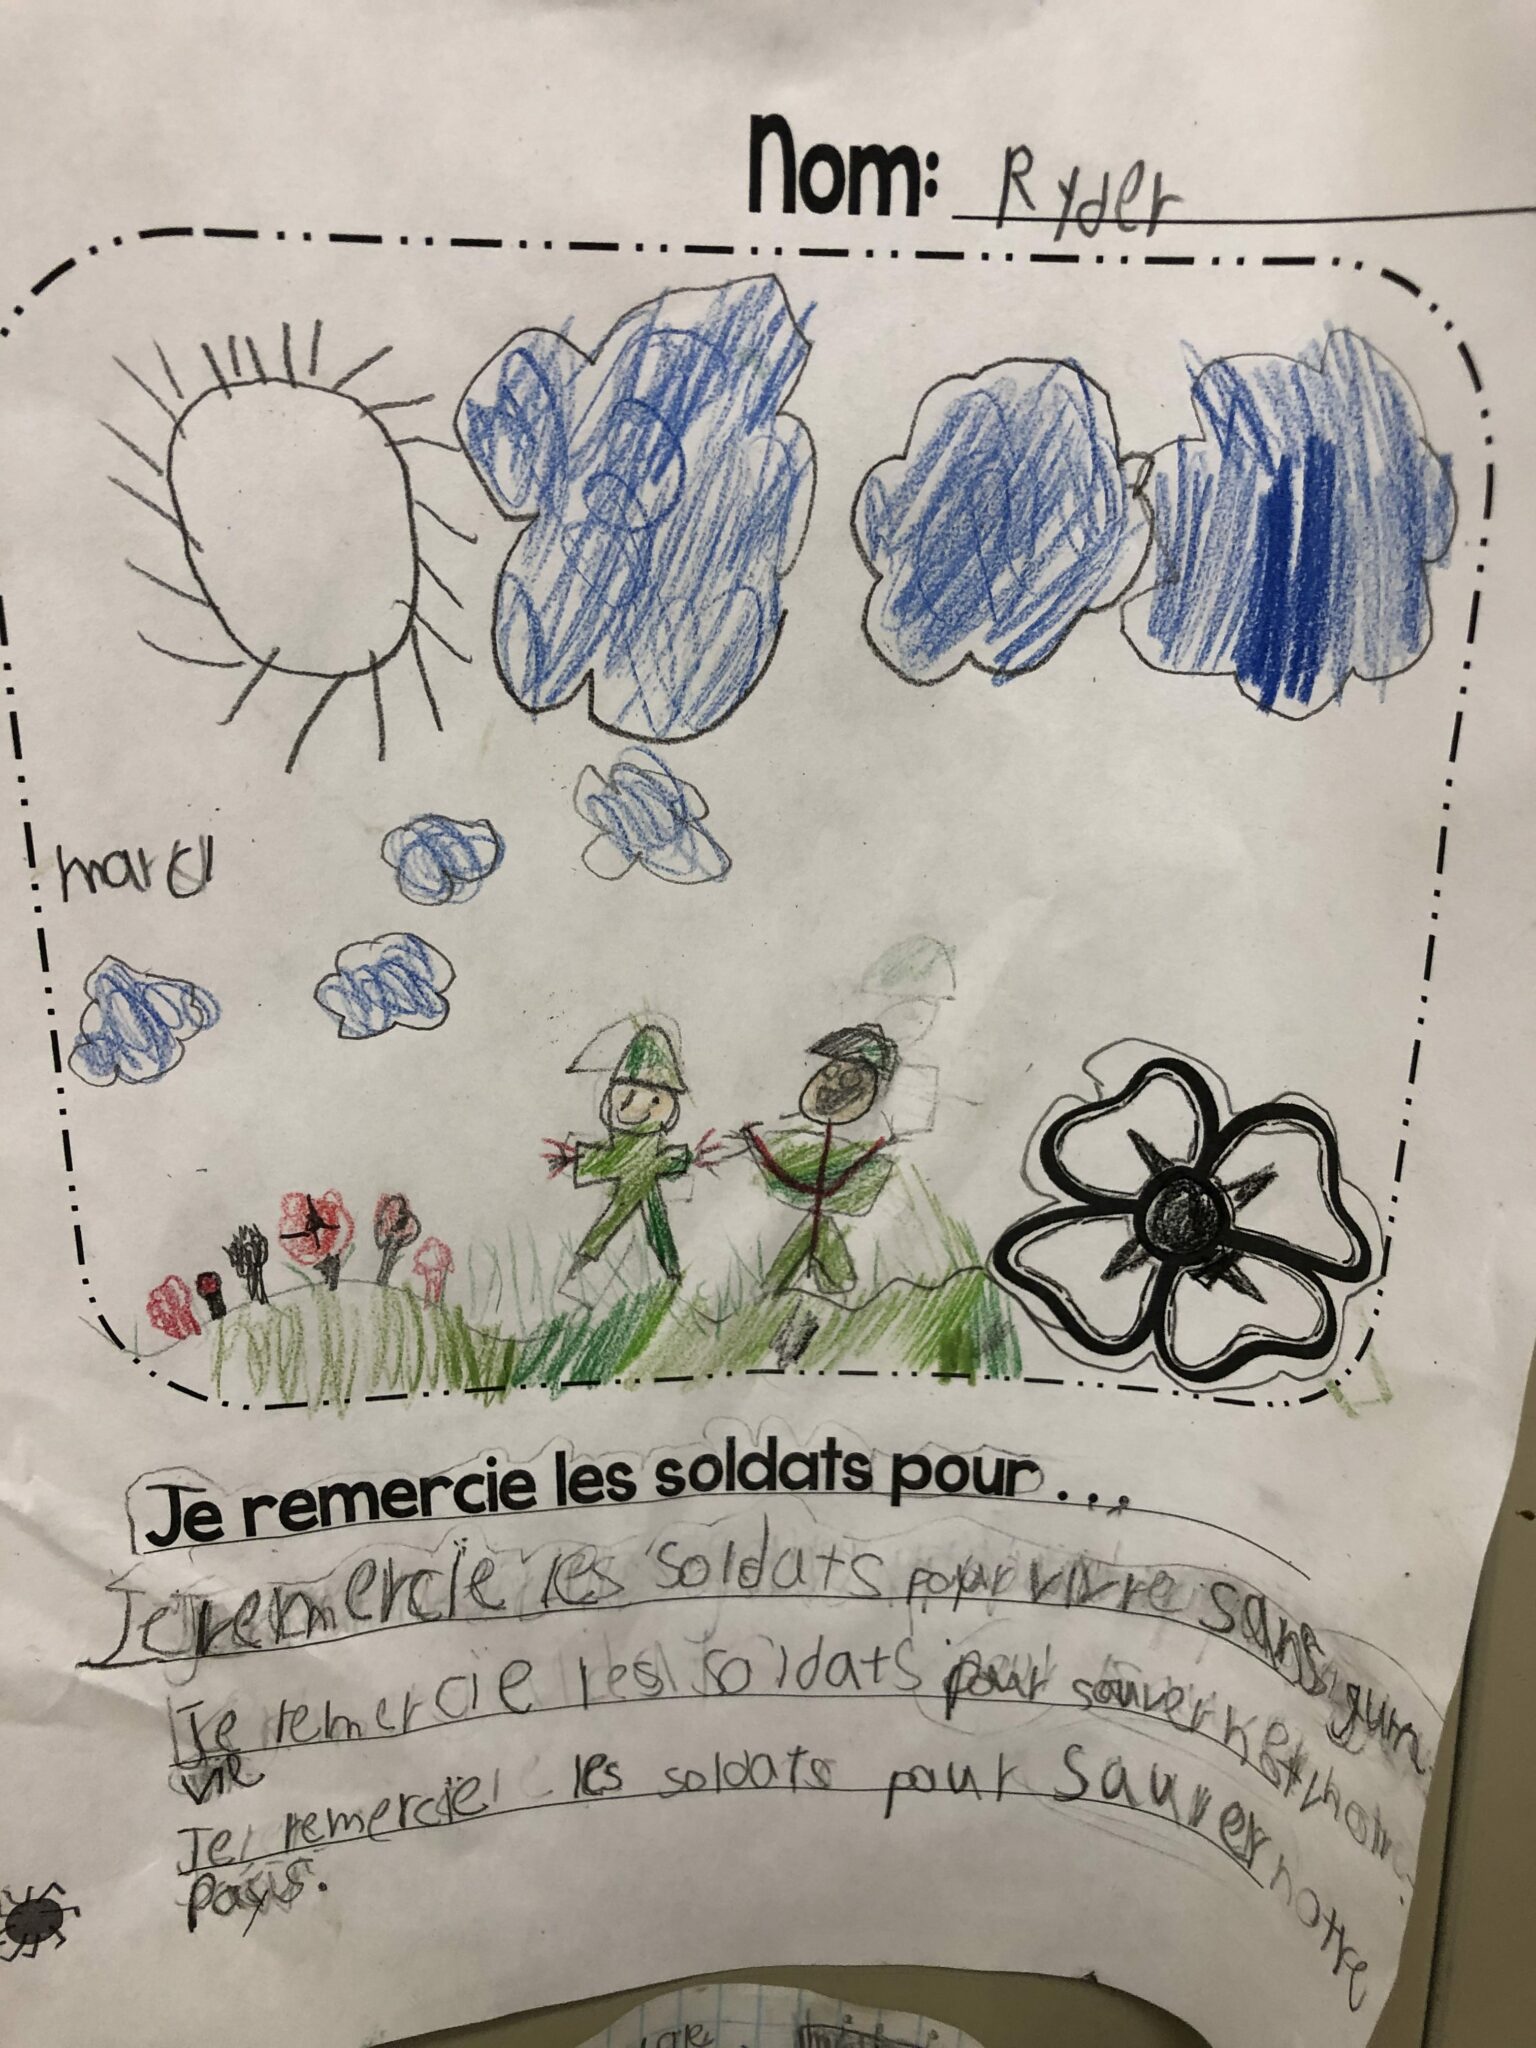 Nom: Ryder
mardi
Je remercie les soldats pour...
Je remercie les soldats pour vivre sans
Je remercie les soldats pour sauver
vie
Je remercie les soldats pour sauver notre
pays.